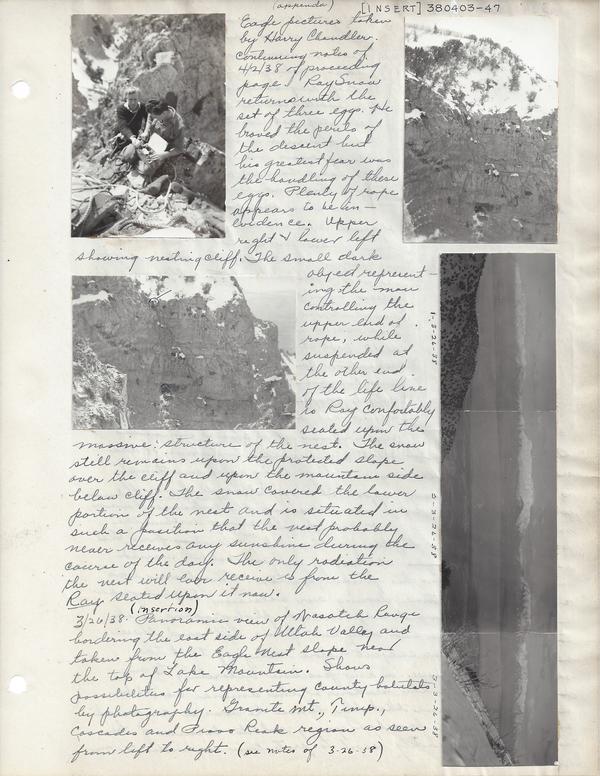 (appenda) [INSERT] 380403-47
Eagle pictures taken
by Harry Chandler.
Continuing notes of
4/2/38 of preceeding
page. Ray Snow
returns with the
set of three eggs. He
braved the perils of
the descent but
his greatest fear was
the handling of these
eggs. Plenty of rope
appears to be in-
evidence. Upper
right & lower left
showing nesting cliff. The small dark
object represent-
ing the man
controlling the
upper end of
rope, while
suspended at
the other end
of the life line
is Ray confortably
seated upon the
massive structure of the nest. The snow
still remains upon the protected slope
over the cliff and upon the mountain side
below cliff. The snow covered the lower
portion of the nest and is situated in
such a position that the nest probably
never receives any sunshine during the
course of the day. The only radiation
the nest will ever receive is from the
Ray seated upon it now.
(insertion)
3/26/38. Panoramic view of Wasatch Range
bordering the east side of Utah Valley and
taken from the Eagle Nest slope near
the top of Lake Mountain. Shows
possibilities for representing county habitats
by photography. Granite Mt., Timp.,
Cascades and Provo Peak region as seen
from left to right. (see notes of 3-26-38)
1-3-26-38
2-3-26-38
3-3-26-38